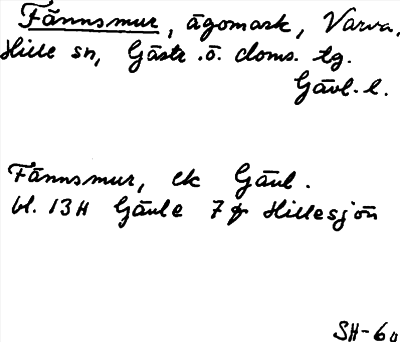 Fännsmur, ägomark, Varva,
Hille sn, Gästr. ö. doms. tg.
Gävl. l.
Fännsmur, ek Gävl.
bl. 13H Gävle 7 φ Hillesjön
SH-60